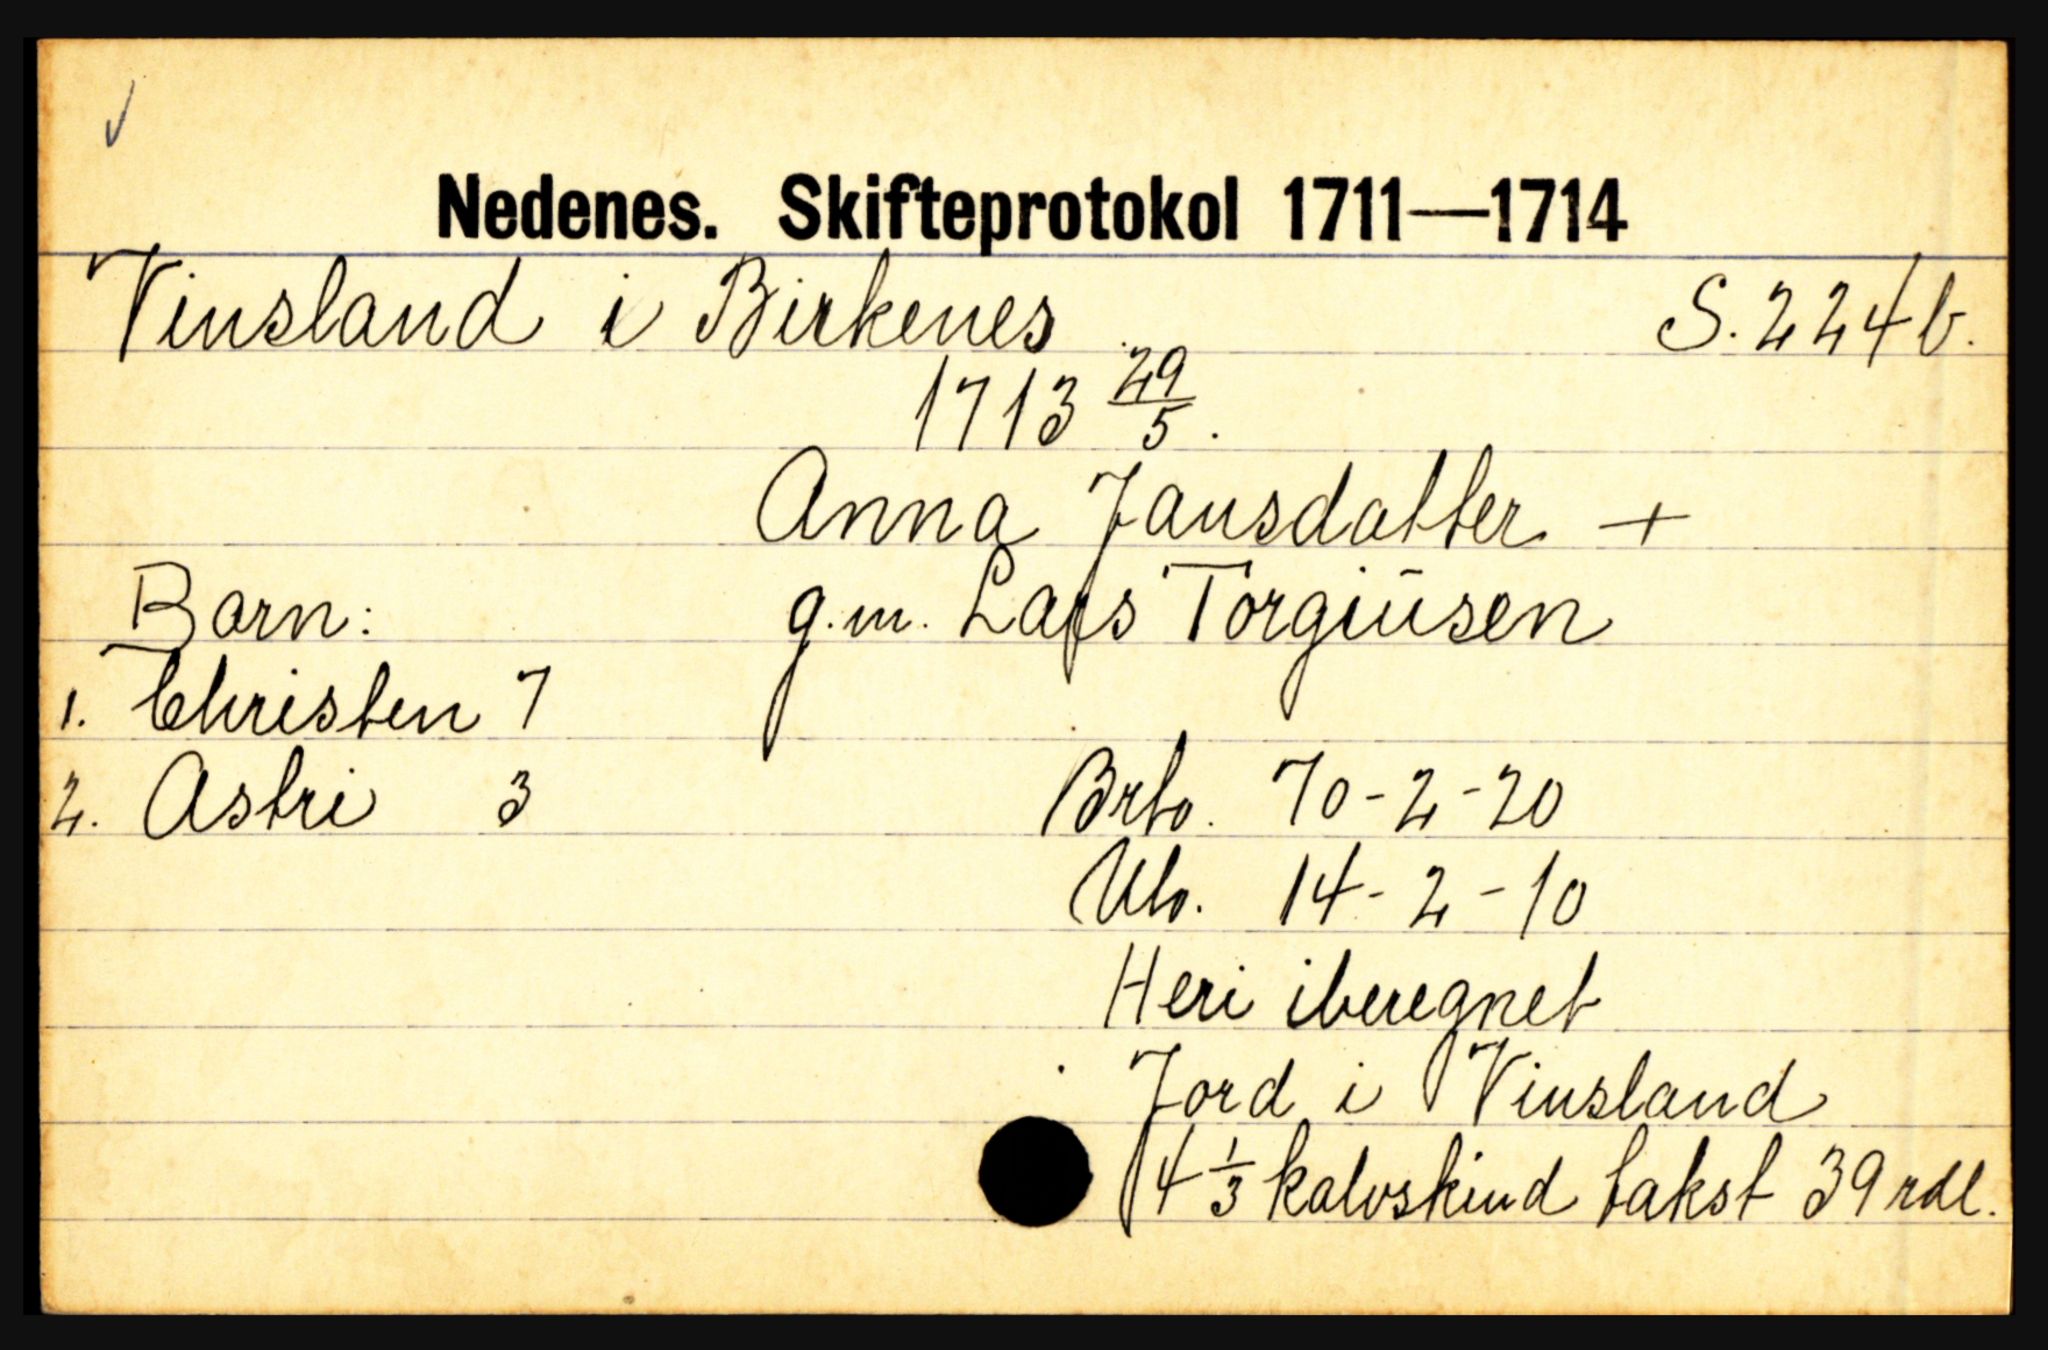 Nedenes. Skifteprotokol 1711—1714
Vinsland i Birkenes S. 224b.
1713 29/5.
Anna Jansdatter +
Barn: g.m. Lars Torgiusen
1. Christen 7
2. Astri 3 Brto. 70-2-20
Nto. 14-2-10
Heri iberegnet
Jord i Vinsland
4 1/3 kalvskind takst 39 rdl.